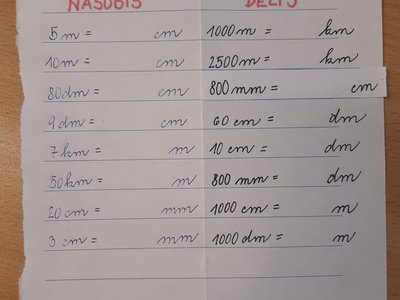 NÁSOBÍŠ DĚLÍŠ
5 m = cm 1000 m = km
10 m = cm 2500 m = km
80 dm = cm 800 mm = cm
9 dm = cm 60 cm = dm
7 km = m 10 cm = dm
50 km = m 800 mm = dm
20 cm = mm 1000 cm = m
3 cm = mm 1000 dm = m